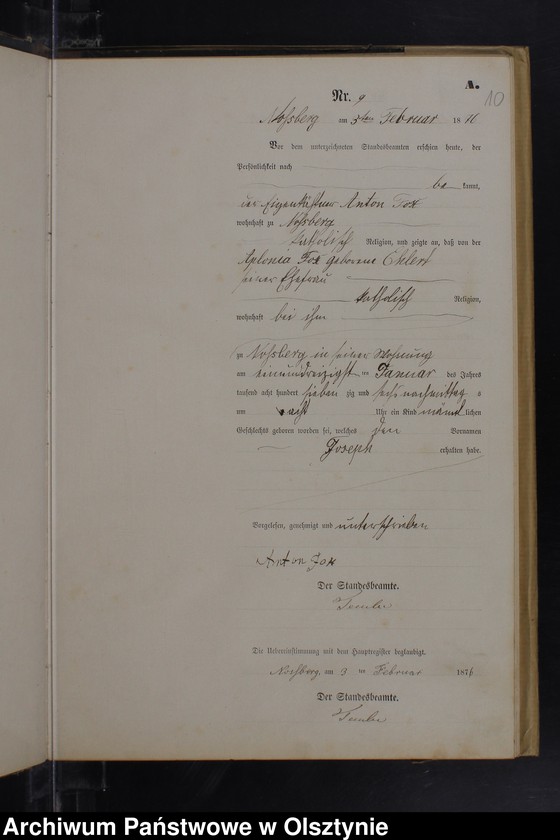 A.
10
Nr. 9
Nossberg am 3ten Februar 1876
Vor dem unterzeichneten Standesbeamten erschien heute, der
Persönlichkeit nach
be kannt,
der Eigenkäthner Anton Fox
wohnhaft zu Nossberg
katholisch Religion, und zeigte an, daß von der
Aplonia Fox geborene Ehlert
seiner Ehefrau
katholisch Religion,
wohnhaft bei ihm
zu Nossberg in seiner Wohnung
am einunddreizigst ten Januar des Jahres
tausend acht hundert sieben zig und sechs nachmittag s
um acht Uhr ein Kind männ lichen
Geschlechts geboren worden sei, welches den Vornamen
Joseph erhalten habe.
Vorgelesen, genehmigt und unterschrieben
Anton Fox
Der Standesbeamte.
Die Uebereinstimmung mit dem Hauptregister beglaubigt.
Nossberg, am 3 ten Februar 1876
Der Standesbeamte.
Archiwum Państwowe w Olsztynie